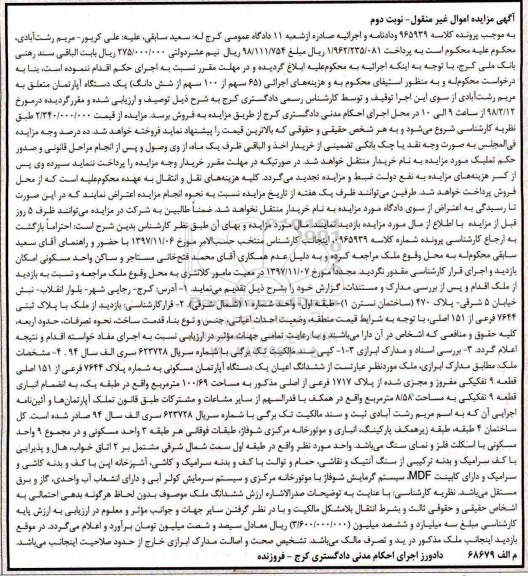 آگهی مزایده اموال غیر منقول- نوبت دوم
به موجب پرونده کلاسه ۹۶۵۹۳۹ ودادنامه و اجرائیه صادره ازشعبه ۱۱ دادگاه عمومی کرج له: سعید سابقی، علیه: علی کریور- مریم رشت‌آبادی،
محکوم علیه محکوم است به پرداخت ۱/۹۶۲/۲۳۵/۰۸۱ ریال مبلغ ۹۸/۱۱۱/۷۵۴ ریال نیم عشردولتی ۲۷۵/۰۰۰/۰۰۰ ریال بابت الباقی سند رهنی
بانک ملی کرج، با توجه به اینکه اجرائیه به محکوم‌علیه ابلاغ گردیده و در مهلت مقرر نسبت به اجرای حکم اقدام ننموده است، بنا به
درخواست محکوم‌له و به منظور استیفای محکوم به و هزینه‌های اجرائی (۶۵ سهم از ۱۰۰ سهم از شش دانگ) یک دستگاه آپارتمان متعلق به
مریم رشت‌آبادی از سوی این اجرا توقیف و توسط کارشناس رسمی دادگستری کرج به شرح ذیل توصیف و ارزیابی شده و مقررگردیده درمورخ
۹۸/۲/۱۲ از ساعت ۹ الی ۱۰ در محل اجرای احکام مدنی دادگستری کرج از طریق مزایده به فروش برسد. مزایده از قیمت ۲/۳۴۰/۰۰۰/۰۰۰ طبق
نظریه کارشناسی شروع می‌شود و به هر شخص حقیقی و حقوقی که بالاترین قیمت را پیشنهاد نماید فروخته خواهد شد. ده درصد وجه مزایده
فی‌المجلس به صورت وجه نقد یا چک بانکی تضمینی از خریدار اخذ و الباقی ظرف یک ماه، از وی وصول و پس از انجام مراحل قانونی و صدور
حکم تملیک مورد مزایده به نام خریدار منتقل خواهد شد. در صورتیکه در مهلت مقرر خریدار وجه مزایده را پرداخت ننماید سپرده وی پس
از کسر هزینه‌های مزایده به نفع دولت ضبط و مزایده تجدید می‌گردد. کلیه هزینه‌های نقل و انتقال به عهده محکوم‌علیه است که از محل
فروش پرداخت خواهد شد. طرفین می‌توانند ظرف یک هفته از تاریخ مزایده نسبت به نحوه انجام مزایده اعتراض نمایند که در این صورت
تا رسیدگی به اعتراض از سوی دادگاه مورد مزایده به نام خریدار منتقل نخواهد شد. ضمناً طالبین به شرکت در مزایده می‌توانند ظرف ۵ روز
قبل از مزایده با اطلاع از سال مورد مزایده بازدید نمایند. سال مورد مزایده و بهای آن طبق نظر کارشناس بدین شرح است: احتراماً بازگشت
به ارجاع کارشناسی پرونده شماره کلاسه ۹۶۵۹۳۹، اینجانب کارشناس منتخب حسب‌الامر مورخ ۱۳۹۷/۱۱/۰۶ با حضور و راهنمای آقای سعید
سابقی محکوم‌له به محل وقوع ملک مراجعه کرده و به دلیل عدم همکاری آقای محمد فتح‌خانی مستاجر و ساکن واحد مسکونی امکان
بازدید و اجرای قرار کارشناسی مقدور نگردید. مجدداً مورخ ۱۳۹۷/۱۱/۰۷ در معیت مامور کلانتری به محل وقوع ملک مراجعه و نسبت به بازدید
از ملک اقدام و پس از بررسی مدارک و مستندات، گزارش خود را بشرح ذیل تقدیم می‌نماید. ۱- آدرس: کرج- رجایی شهر- بلوار انقلاب- نبش
خیابان ۵ شرقی- پلاک ۴۷۰ (ساختمان نسترن ۱)- طبقه اول- واحد شماره ۱ (شمال شرقی). ۲- قرارکارشناسی: بازدید از ملک با پلاک ثبتی
۷۶۴۴ فرعی از ۱۵۱ اصلی، با توجه به شرایط قیمت منطقه، وضعیت احداث اعیانی، جنس و نوع بنا، قدمت ساخت، نحوه تصرفات، حدود اربعه،
کلیه حقوق و منافعی که اشخاص در آن دارا می‌باشند و با رعایت تمامی جهات مؤثر در ارزیابی نسبت به اجرای مفاد خواسته اقدام و نتیجه
اعلام گردد. ۳- بررسی اسناد و مدارک ابرازی ۱-۳- کپی سند مالکیت تک برگی با شماره سریال ۶۲۳۷۲۸ سری الف سال ۹۴. ۴- مشخصات
ملک: مطابق مدارک ابرازی، ملک موردنظر عبارتست از ششدانگ اعیان یک دستگاه آپارتمان مسکونی به شماره پلاک ۷۶۴۴ فرعی از ۱۵۱ اصلی
قطعه ۹ تفکیکی مفروز و مجزی شده از پلاک ۱۷۱۷ فرعی از اصلی مذکور به مساحت ۱۰۰/۶۹ مترمربع واقع در طبقه یک، به انضمام انباری
قطعه ۹ تفکیکی به مساحت ۸/۵۸ مترمربع واقع در همکف با قدرالسهم از سایر مشاعات و مشترکات طبق قانون تملک آپارتمان‌ها و آئین‌نامه
اجرایی آن که به اسم مریم رشت آبادی ثبت و سند مالکیت تک برگی با شماره سریال ۶۲۳۷۲۸ سری الف سال ۹۴ صادر شده است. کل
ساختمان ۴ طبقه، طبقه زیرهمکف پارکینگ، انباری و موتورخانه مرکزی شوفاژ، طبقات فوقانی هر طبقه ۳ واحد مسکونی و در مجموع ۹ واحد
مسکونی با اسکلت فلز و نمای سنگ می‌باشد. واحد مورد نظر واقع در طبقه اول سمت شمال شرقی مشتمل بر ۲ اتاق خواب، هال و پذیرایی
با کف سرامیک و بدنه ترکیبی از سنگ آنتیک و نقاشی، حمام و توالت با کف و بدنه سرامیک و کاشی، آشپزخانه اپن با کف و بدنه کاشی و
سرامیک و دارای کابینت MDF، سیستم گرمایش شوفاژ با موتورخانه مرکزی و سیستم سرمایش کولر آبی و دارای انشعاب آب واحدی، گاز و برق
مستقل می‌باشد. نظریه کارشناسی: با عنایت به توضیحات صدرالاشاره ارزش ششدانگ ملک موصوف بدون لحاظ هرگونه بدهی احتمالی به
اشخاص حقیقی و حقوقی ثالث و بشرط انتقال بلامشکل مالکیت و با در نظر گرفتن سایر جهات و جوانب مؤثر و معلوم در ارزیابی به ارزش پایه
کارشناسی مبلغ سه میلیارد و ششصد میلیون (۳/۶۰۰/۰۰۰/۰۰۰) ریال معادل سیصد و شصت میلیون تومان برآورد و اعلام می‌گردد. در موقع
بازدید اینجانب ملک مذکور در ید و تصرف مالک می‌باشد. تشخیص صحت و اصالت مدارک ابرازی خارج از حدود صلاحیت اینجانب می‌باشد.
م الف ۶۸۶۷۹ دادورز اجرای احکام مدنی دادگستری کرج - فروزنده